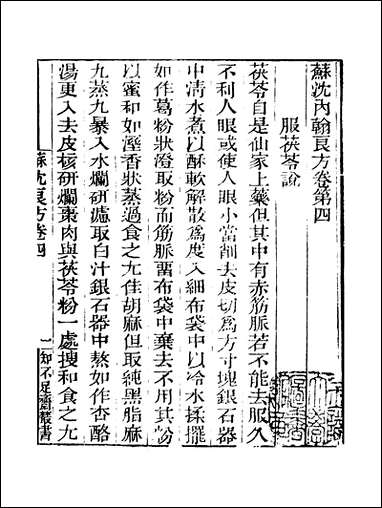 蘇沈內翰良方卷第四
服茯苓說
茯苓自是仙家上藥但其中有赤筋脈若不能去服久
不利人眼或使人眼小當削去皮切爲方寸塊銀石器
中清水煮以酥軟解散爲度入細布袋中以冷水揉擺
如作葛粉狀澄取粉而筋脈畱布袋中棄去不用其粉
以蜜和如溼香狀蒸過食之尤佳胡麻但取純黑脂麻
九蒸九暴入水爛研濾取白汁銀石器中熬如作杏酪
湯更入去皮核研爛棗肉與茯苓粉一處搜和食之尤
蘇沈良方卷四
一
知不足齋叢書